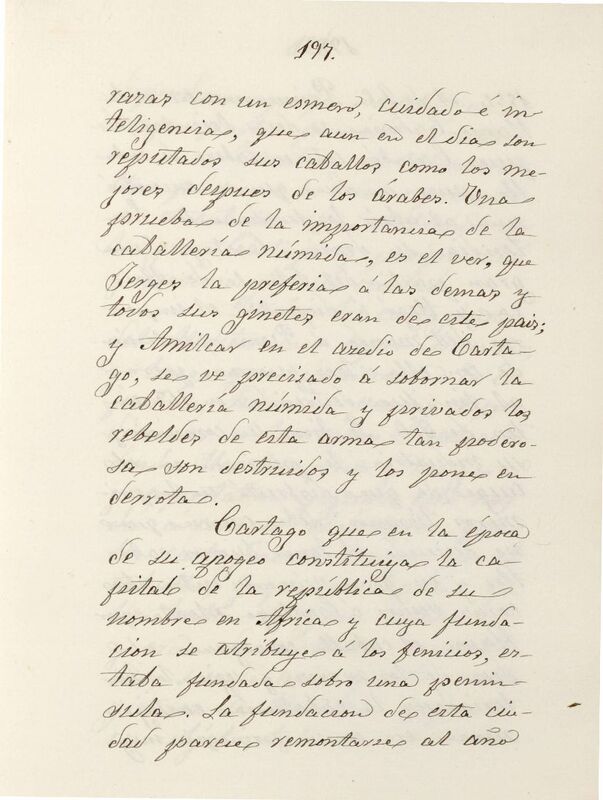 197.
razas con un esmero, cuidado é in-
teligencia, que aun en el dia son
reputados sus caballos como los me-
jores despues de los arabes. Una
prueba de la importancia de la
caballería númida, es el ver, que
Jerges la preferia á las demas y
todos sus ginetes eran de este pais;
y Amilcar en el azedio de Carta-
go, se ve precisado á sobornar la
caballería númida y privados los
rebeldes de esta arma tan podero-
sa son destruidos y los pone en
derrota.
Cartago que en la época
de su apogeo constituiya la ca-
pital de la república de su
nombre en Africa y cuya funda-
cion se atribuye á los fenicios, es-
taba fundada sobro una penin-
sula. La fundacion de esta ciu-
dad parece remontarse al año